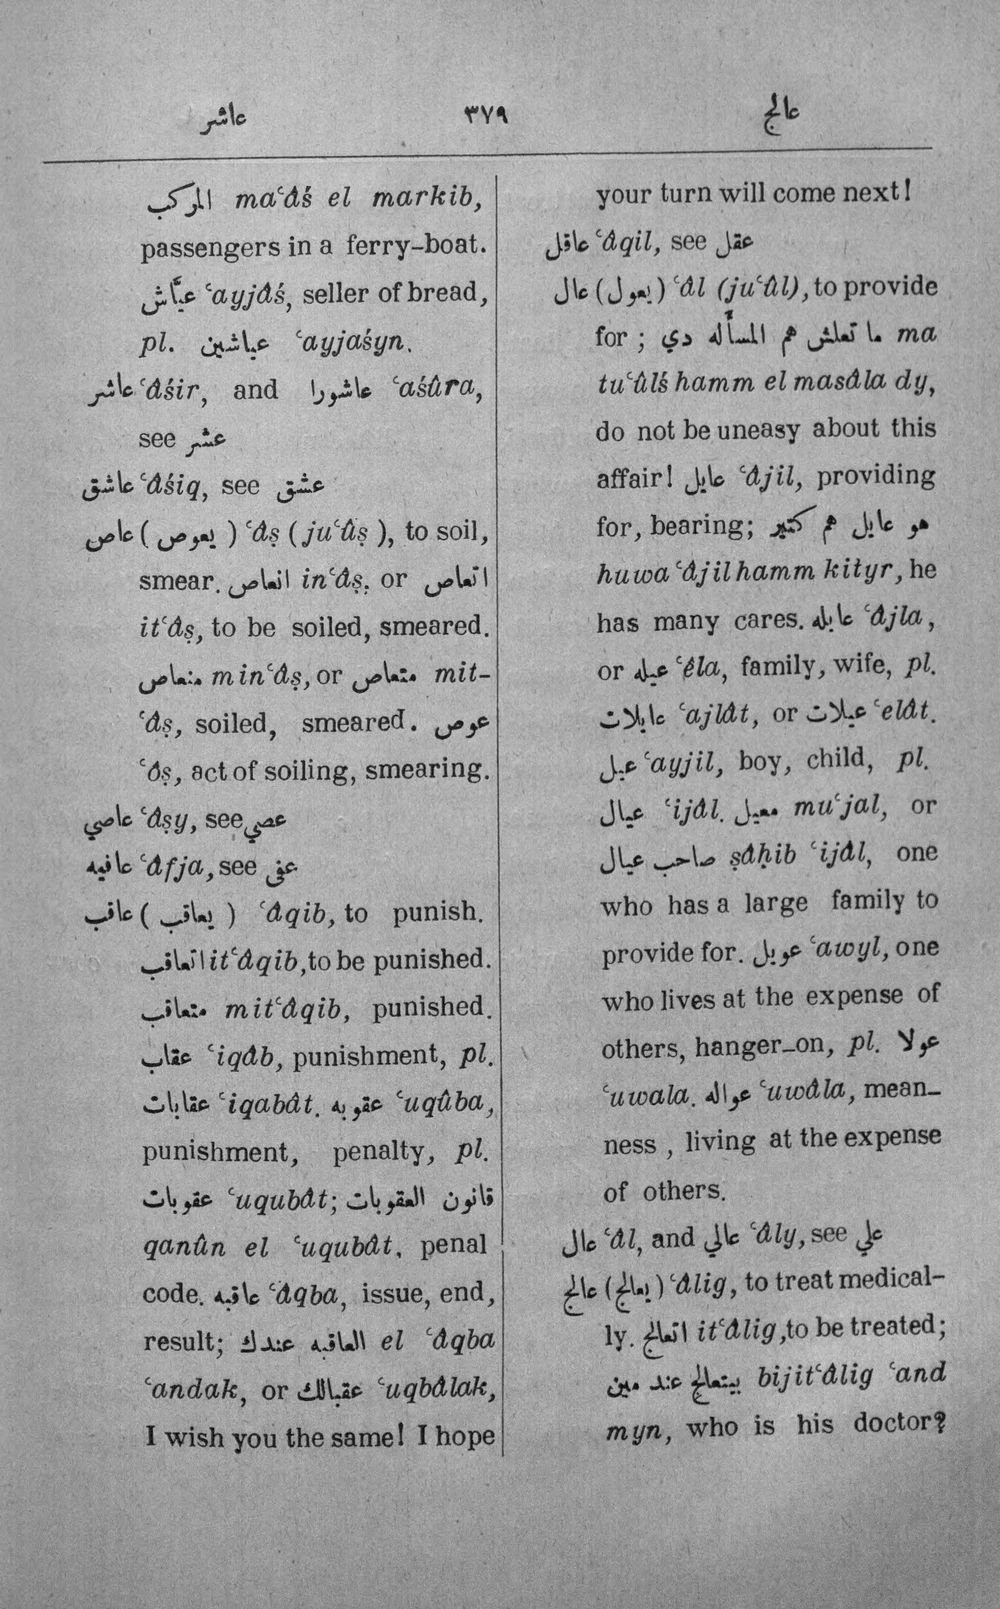 عاشر ٣٧٩ عالج
المركب maʿâś el markib,
passengers in a ferry-boat.
عيَّاش ʿayjâś, seller of bread,
pl. عياشين ʿayjaśyn.
عاشر ʿâśir, and عاشورا ʿaśûra,
see عشر
عاشق ʿâśiq, see عشق
عاص (يعوص) ʿâṣ (juʿûṣ), to soil,
smear. انعاص inʿâṣ, or اتعاص
itʿâṣ, to be soiled, smeared.
منعاص minʿâṣ, or متعاص mit-
ʿâṣ, soiled, smeared. عوص
ʿôṣ, act of soiling, smearing.
عاصي ʿâṣy, see عصي
عافيه ʿâfja, see عفى
عاقب (يعاقب) ʿâqib, to punish.
اتعاقب itʿâqib, to be punished.
متعاقب mitʿâqib, punished.
عقاب ʿiqâb, punishment, pl.
عقابات ʿiqabât. عقوبه ʿuqûba,
punishment, penalty, pl.
عقوبات ʿuqubât; قانون العقوبات
qanûn el ʿuqubât, penal
code. عاقبه ʿâqba, issue, end,
result; العاقبه عندك el ʿâqba
ʿandak, or عقبالك ʿuqbâlak,
I wish you the same! I hope
your turn will come next!
عاقل ʿâqil, see عقل
عال (يعول) ʿâl (juʿûl), to provide
for; ما تعلش هم المسأله دي ma
tuʿûlś hamm el masâla dy,
do not be uneasy about this
affair! عايل ʿâjil, providing
for, bearing; هو عايل هم كتير
huwa ʿâjil hamm kityr, he
has many cares. عايله ʿâjla,
or عيله ʿêla, family, wife, pl.
عايلات ʿajlât, or عيلات ʿelât.
عيل ʿayjil, boy, child, pl.
عيال ʿijâl. معيل muʿjal, or
صاحب عيال ṣâḥib ʿijâl, one
who has a large family to
provide for. عويل ʿawyl, one
who lives at the expense of
others, hanger-on, pl. عولا
ʿuwala. عواله ʿuwâla, mean-
ness, living at the expense
of others.
عال ʿâl, and عالي ʿâly, see علي
عالج (يعالج) ʿâlig, to treat medical-
ly. اتعالج itʿâlig, to be treated;
بيتعالج عند مين bijitʿâlig ʿand
myn, who is his doctor?